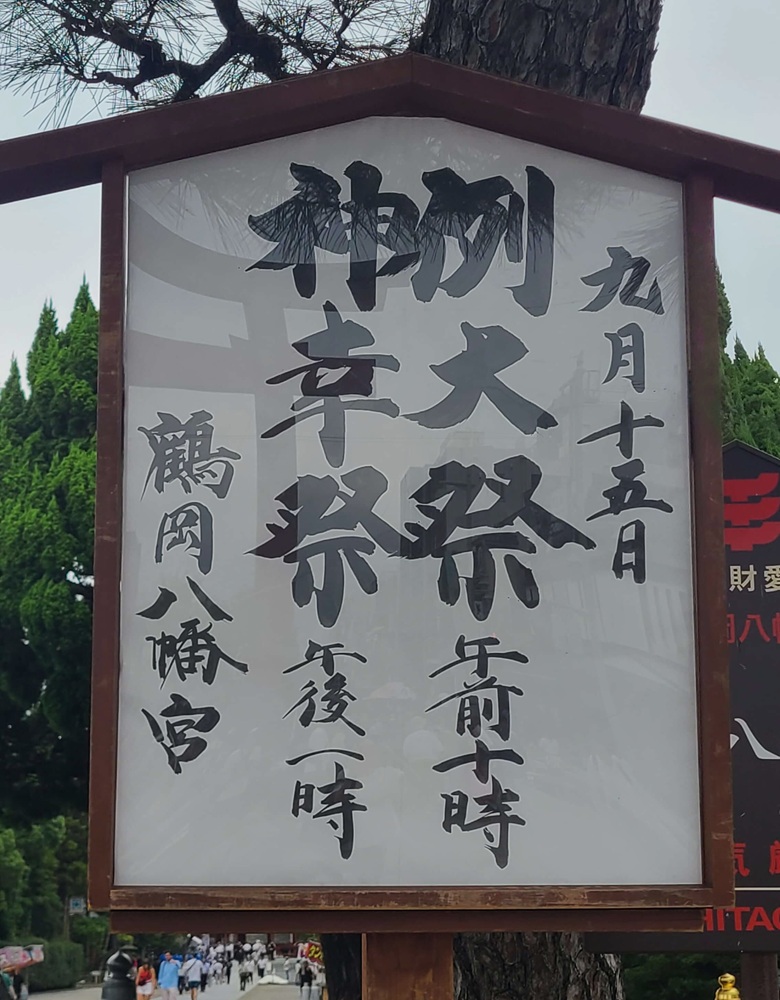 九月十五日
例大祭 午前十時
神幸祭 午後一時
鶴岡八幡宮
財愛
八幡
八
気
HITAC